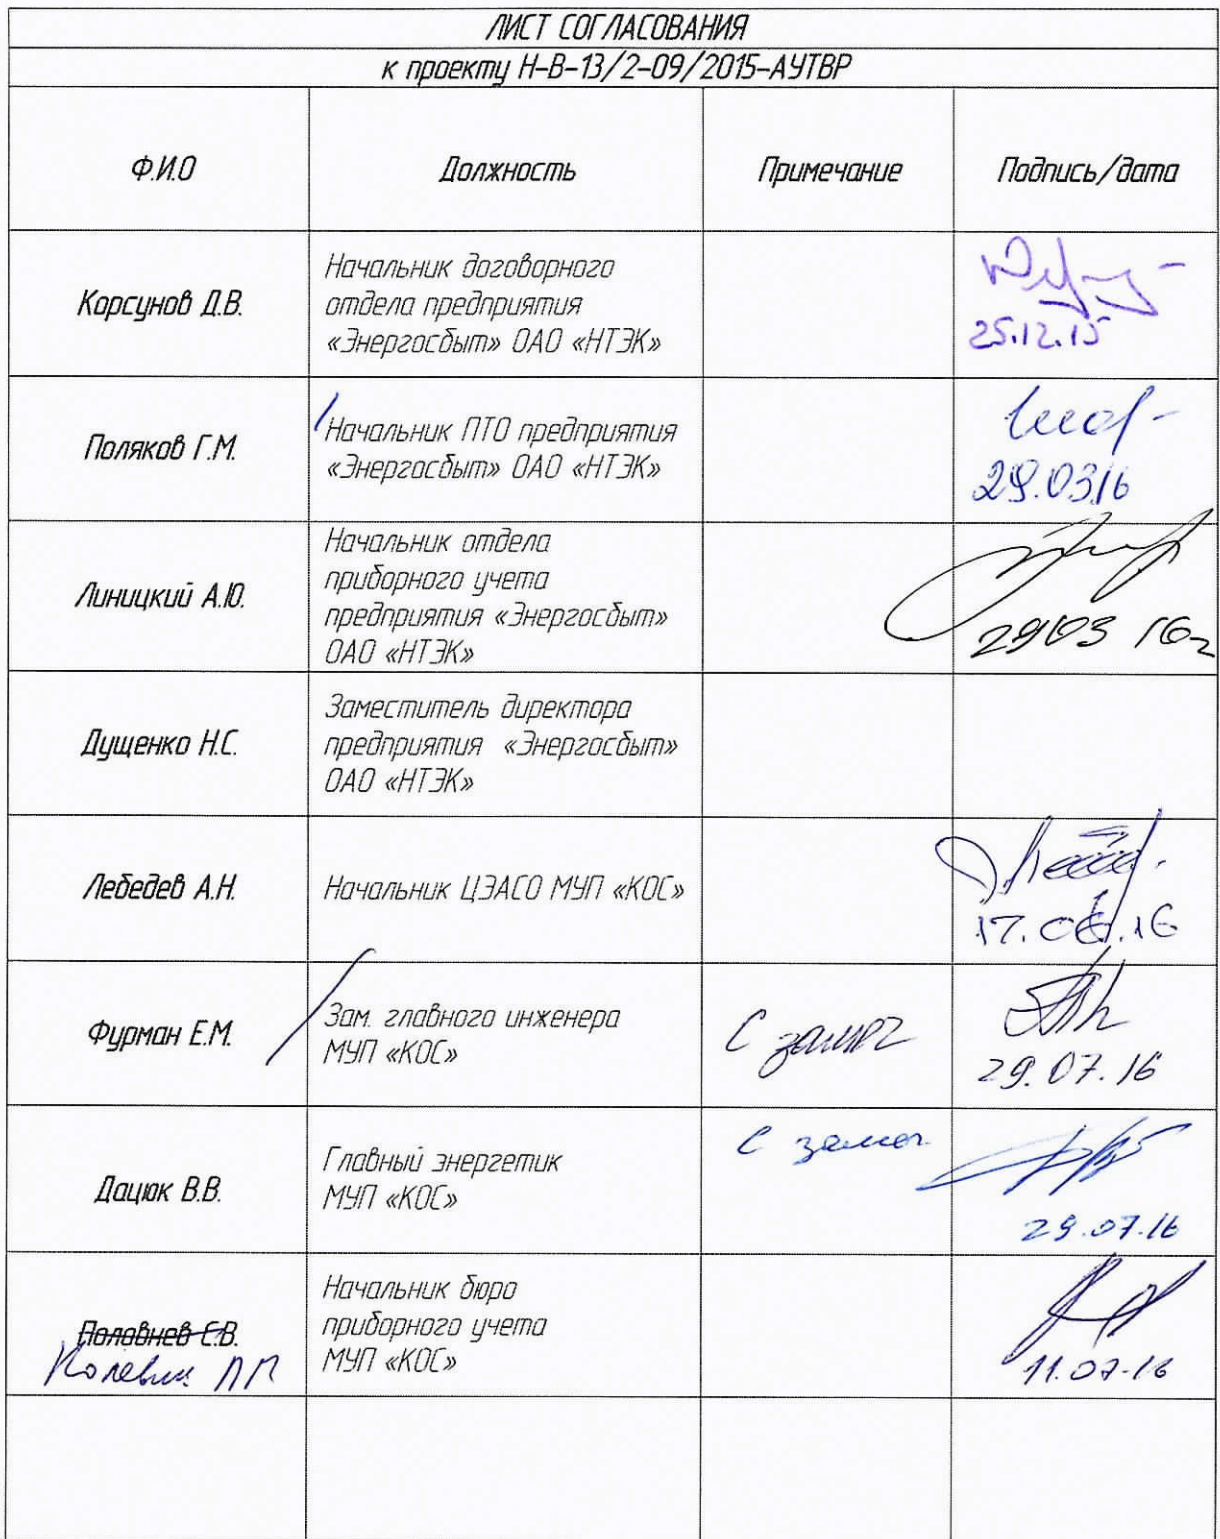 ЛИСТ СОГЛАСОВАНИЯ
к проекту Н-В-13/2-09/2015-АУТВР
Ф.И.О
Должность
Примечание
Подпись/дата
Корсунов Д.В.
Начальник договорного
отдела предприятия
«Энергосбыт» ОАО «НТЭК»
25.12.15
Поляков Г.М.
Начальник ПТО предприятия
«Энергосбыт» ОАО «НТЭК»
29.03.16
Линицкий А.Ю.
Начальник отдела
приборного учета
предприятия «Энергосбыт»
ОАО «НТЭК»
29 03 16г
Дущенко Н.С.
Заместитель директора
предприятия «Энергосбыт»
ОАО «НТЭК»
Лебедев А.Н.
Начальник ЦЭАСО МУП «КОС»
Фурман Е.М.
Зам. главного инженера
МУП «КОС»
С замеч
29.07.16
Дацюк В.В.
Главный энергетик
МУП «КОС»
С замеч.
29.07.16
Половнев Е.В.
Начальник бюро
приборного учета
МУП «КОС»
11.07.16